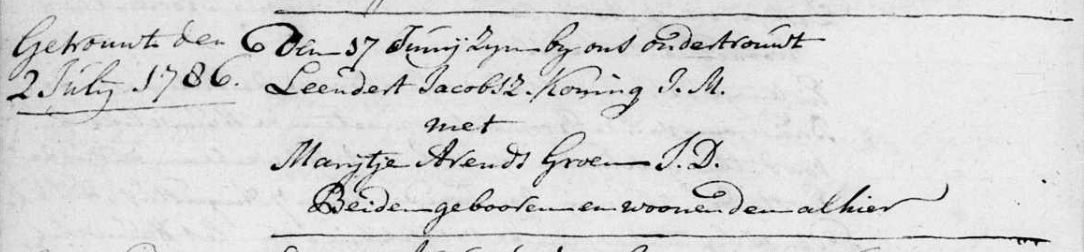 Getrouwt den
2 July 1786.
Den 17 Junij zyn by ons ondertrouwt
Leendert Jacobsz. Koning J. M.
met
Marijtje Arends Groen J. D.
Beiden gebooren en woonende alhier